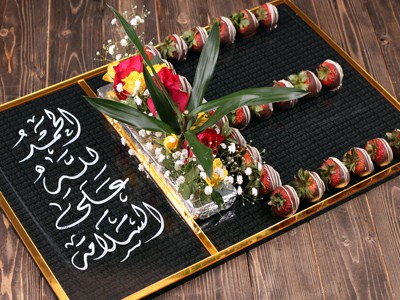 الحمد
لله
على
السلامة